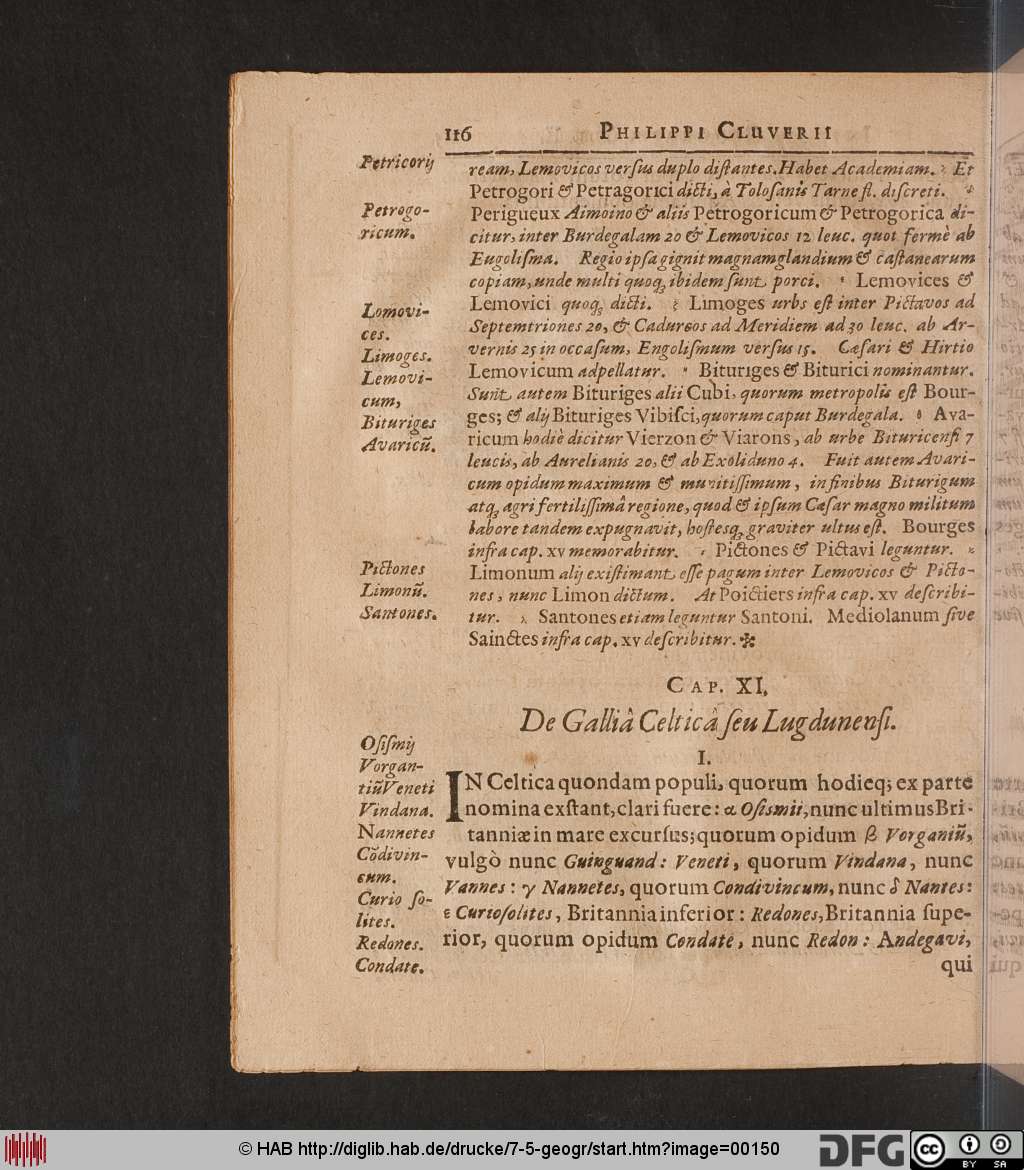 116 PHILIPPI CLUVERII
Petricorij
Petrogo-
ricum.
Lomovi-
ces.
Limoges.
Lemovi-
cum,
Bituriges
Avaricũ.
Pictones
Limonũ.
Santones.
ream, Lemovicos versus duplo distantes. Habet Academiam. Et
Petrogori & Petragorici dicti, à Tolosanis Tarne fl. discreti.
Perigueux Aimoino & aliis Petrogoricum & Petrogorica di-
citur, inter Burdegalam 20 & Lemovicos 12 leuc. quot fermè ab
Eugolisma. Regio ipsa gignit magnam glandium & castanearum
copiam, unde multi quoq; ibidem sunt porci. Lemovices &
Lemovici quoq; dicti. Limoges urbs est inter Pictavos ad
Septemtriones 20, & Cadurcos ad Meridiem ad 30 leuc. ab Ar-
vernis 25 in occasum, Engolismum versus 15. Cæsari & Hirtio
Lemovicum adpellatur. Bituriges & Biturici nominantur.
Sunt autem Bituriges alii Cubi, quorum metropolis est Bour-
ges; & alij Bituriges Vibisci, quorum caput Burdegala. Ava-
ricum hodiè dicitur Vierzon & Viarons, ab urbe Bituricensi 7
leucis, ab Aurelianis 20, & ab Exolduno 4. Fuit autem Avari-
cum opidum maximum & munitissimum, in finibus Biturigum
atq; agri fertilissimâ regione, quod & ipsum Cæsar magno militum
labore tandem expugnavit, hostesq; graviter ultus est. Bourges
infra cap. xv memorabitur. Pictones & Pictavi leguntur.
Limonum alij existimant esse pagum inter Lemovicos & Picto-
nes, nunc Limon dictum. At Poictiers infra cap. xv describi-
tur. Santones etiam leguntur Santoni. Mediolanum sive
Sainctes infra cap. xv describitur.
CAP. XI.
De Galliâ Celticâ seu Lugdunensi.
I.
Osismij
Vorgan-
tiũ Veneti
Vindana.
Nannetes
Cõdivin-
cum.
Curio so-
lites.
Redones.
Condate.
IN Celtica quondam populi, quorum hodieq; ex parte
nomina exstant, clari fuere: α Osismii, nunc ultimus Bri-
tanniæ in mare excursus; quorum opidum β Vorganiũ,
vulgò nunc Guinguand: Veneti, quorum Vindana, nunc
Vannes: γ Nannetes, quorum Condivincum, nunc δ Nantes:
ε Curiosolites, Britannia inferior: Redones, Britannia supe-
rior, quorum opidum Condate, nunc Redon: Andegavi,
qui
© HAB http://diglib.hab.de/drucke/7-5-geogr/start.htm?image=00150
DFG
cc
BY SA